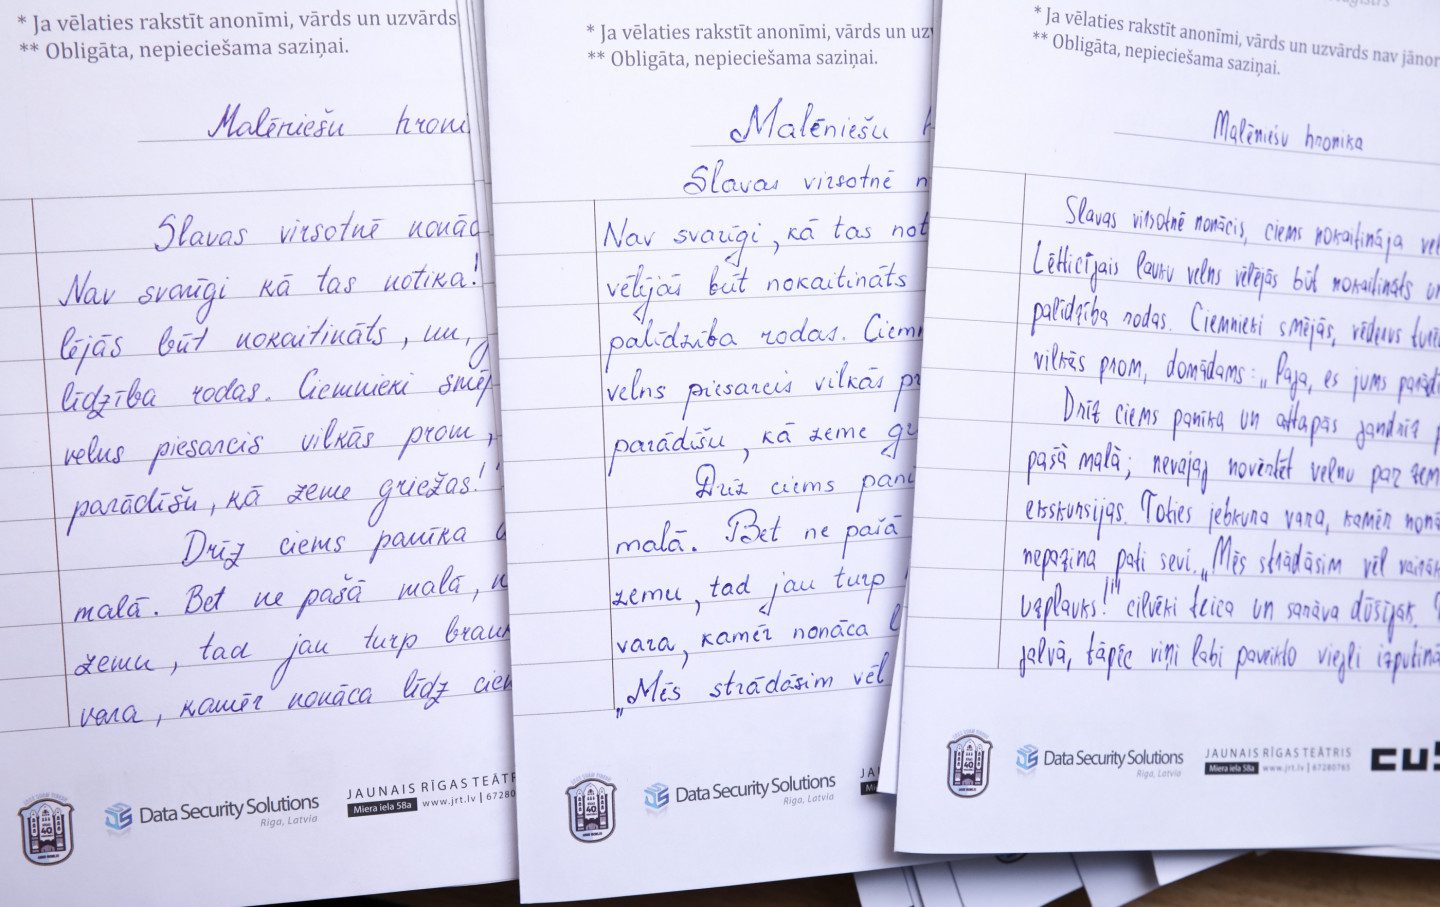 * Ja vēlaties rakstīt anonīmi, vārds un uzvārds
** Obligāta, nepieciešama saziņai.
Malēniešu hroni
Slavas virsotnē nonāc
Nav svarīgi kā tas notika!
lējās būt nokaitināts, un,
līdzība rodas. Ciemnieki smēj
velns piesarcis vilkās prom,
parādīšu, kā zeme griežas!"
Drīz ciems panīka
malā. Bet ne pašā malā, n
zemu, tad jau turp brauk
vara, kamēr nonāca līdz ciem
Data Security Solutions
Riga, Latvia
JAUNAIS RĪGAS TEĀTR
Miera iela 58a www.jrt.lv | 67280
* Ja vēlaties rakstīt anonīmi, vārds un uzv
** Obligāta, nepieciešama saziņai.
Malēniešu h
Slavas virsotnē n
Nav svarīgi, kā tas not
vēlējās būt nokaitināts
palīdzība rodas. Ciemn
velns piesarcis vilkās pr
parādīšu, kā zeme gr
Drīz ciems panī
malā. Bet ne pašā
zemu, tad jau turp
vara, kamēr nonāca l
"Mēs strādāsim vēl
Data Security Solutions
Riga, Latvia
JA
Mi
* Ja vēlaties rakstīt anonīmi, vārds un uzvārds nav jānor
** Obligāta, nepieciešama saziņai.
Malēniešu hronika
Slavas virsotnē nonācis, ciems nokaitināja vel
Lētticījais lauku velns vēlējās būt nokaitināts un
palīdzība rodas. Ciemnieki smējās, vēderus turē
vilkās prom, domādams: "Paga, es jums parādī
Drīz ciems panīka un attapās gandrīz p
pašā malā; nevajag novērtēt velnu par zem
ekskursijas. Toties jebkura vara, kamēr nonā
nepazina pati sevi. "Mēs strādāsim vēl vairāk
uzplauks!" cilvēki teica un sarāva dūšīgāk.
galvā, tāpēc viņi labi paveikto viegli izputinā
Data Security Solutions
Riga, Latvia
JAUNAIS RĪGAS TEĀTRIS
Miera iela 58a www.jrt.lv | 67280765